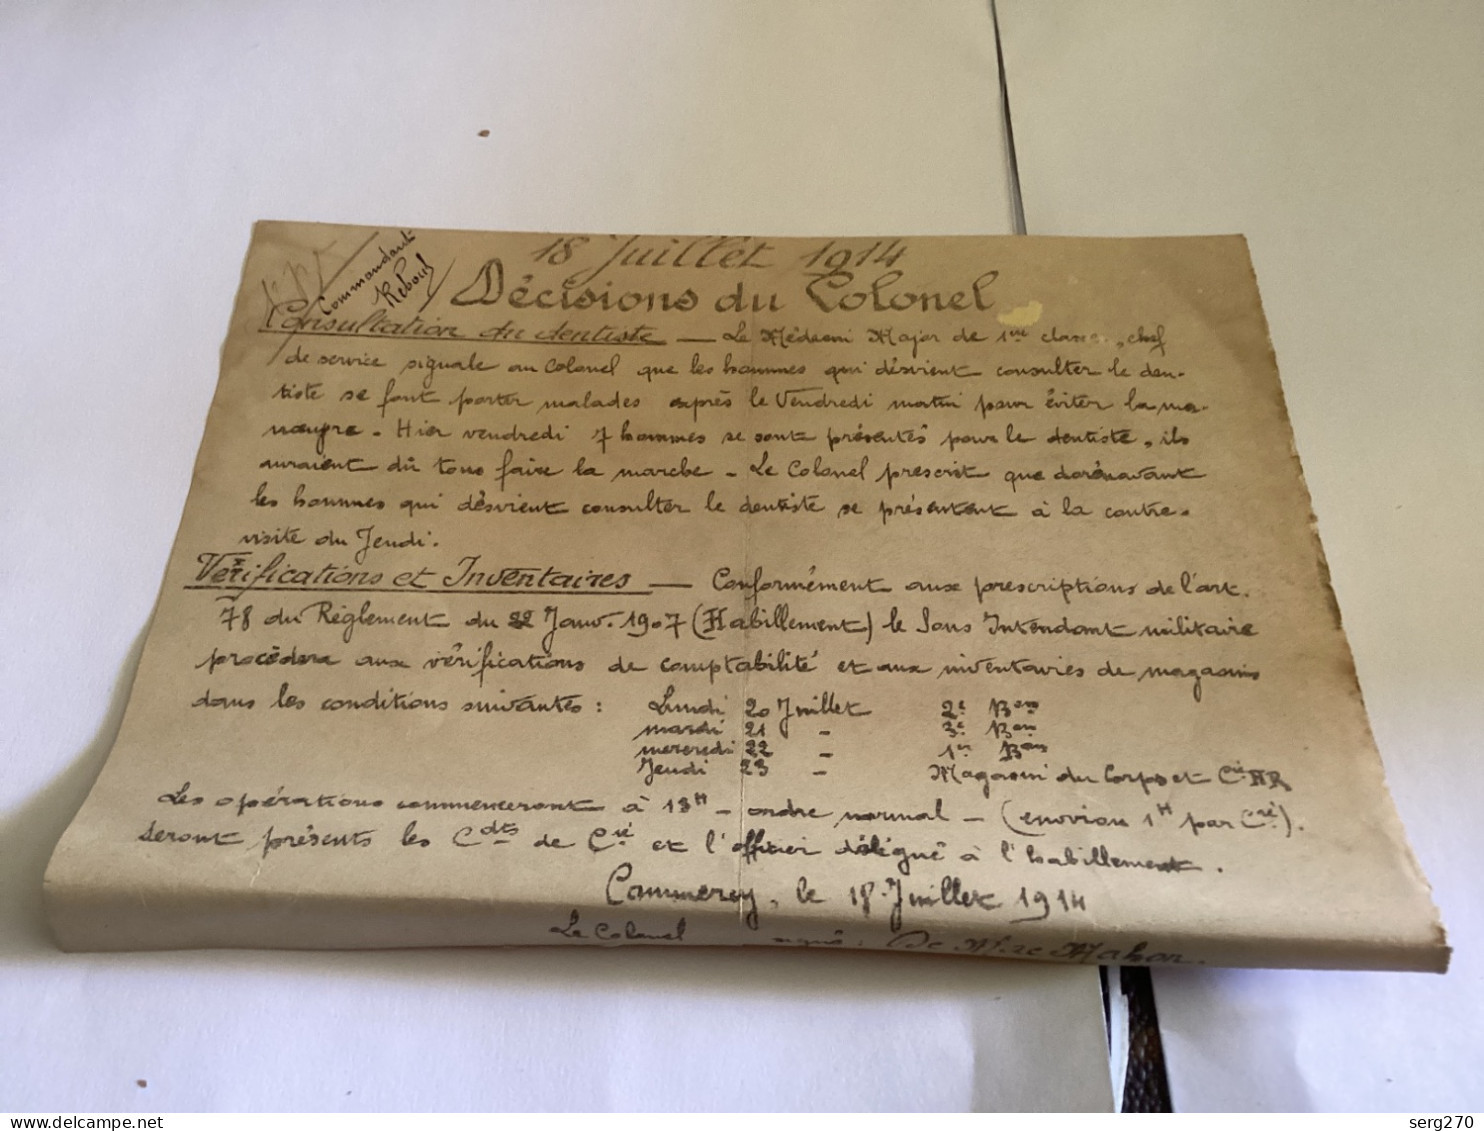 Commandant
Reboul
18 Juillet 1914
Décisions du Colonel
Consultation du dentiste — Le Médecin Major de 1re classe, chef
de service signale au Colonel que les hommes qui désirent consulter le den-
tiste se font porter malades exprès le Vendredi matin pour éviter la ma-
nœuvre. Hier vendredi 7 hommes se sont présentés pour le dentiste, ils
auraient dû tous faire la marche - Le Colonel prescrit que dorénavant
les hommes qui désirent consulter le dentiste se présentent à la contre-
visite du Jeudi.
Vérifications et Inventaires — Conformément aux prescriptions de l'art.
78 du Règlement du 22 Janv. 1907 (Habillement) le Sous Intendant militaire
procèdera aux vérifications de comptabilité et aux inventaires de magasins
dans les conditions suivantes : Lundi 20 Juillet 2e Bon
mardi 21 - 3e Bon
mercredi 22 1er Bon
Jeudi 23 - Magasin du Corps et Cie HR
Les opérations commenceront à 13H - ordre normal - (environ 1H par Cie).
Seront présents les Cdts de Cie et l'officier délégué à l'habillement.
Commercy, le 18 Juillet 1914
Le Colonel signé : De Mac Mahon.
delcampe.net
serg270